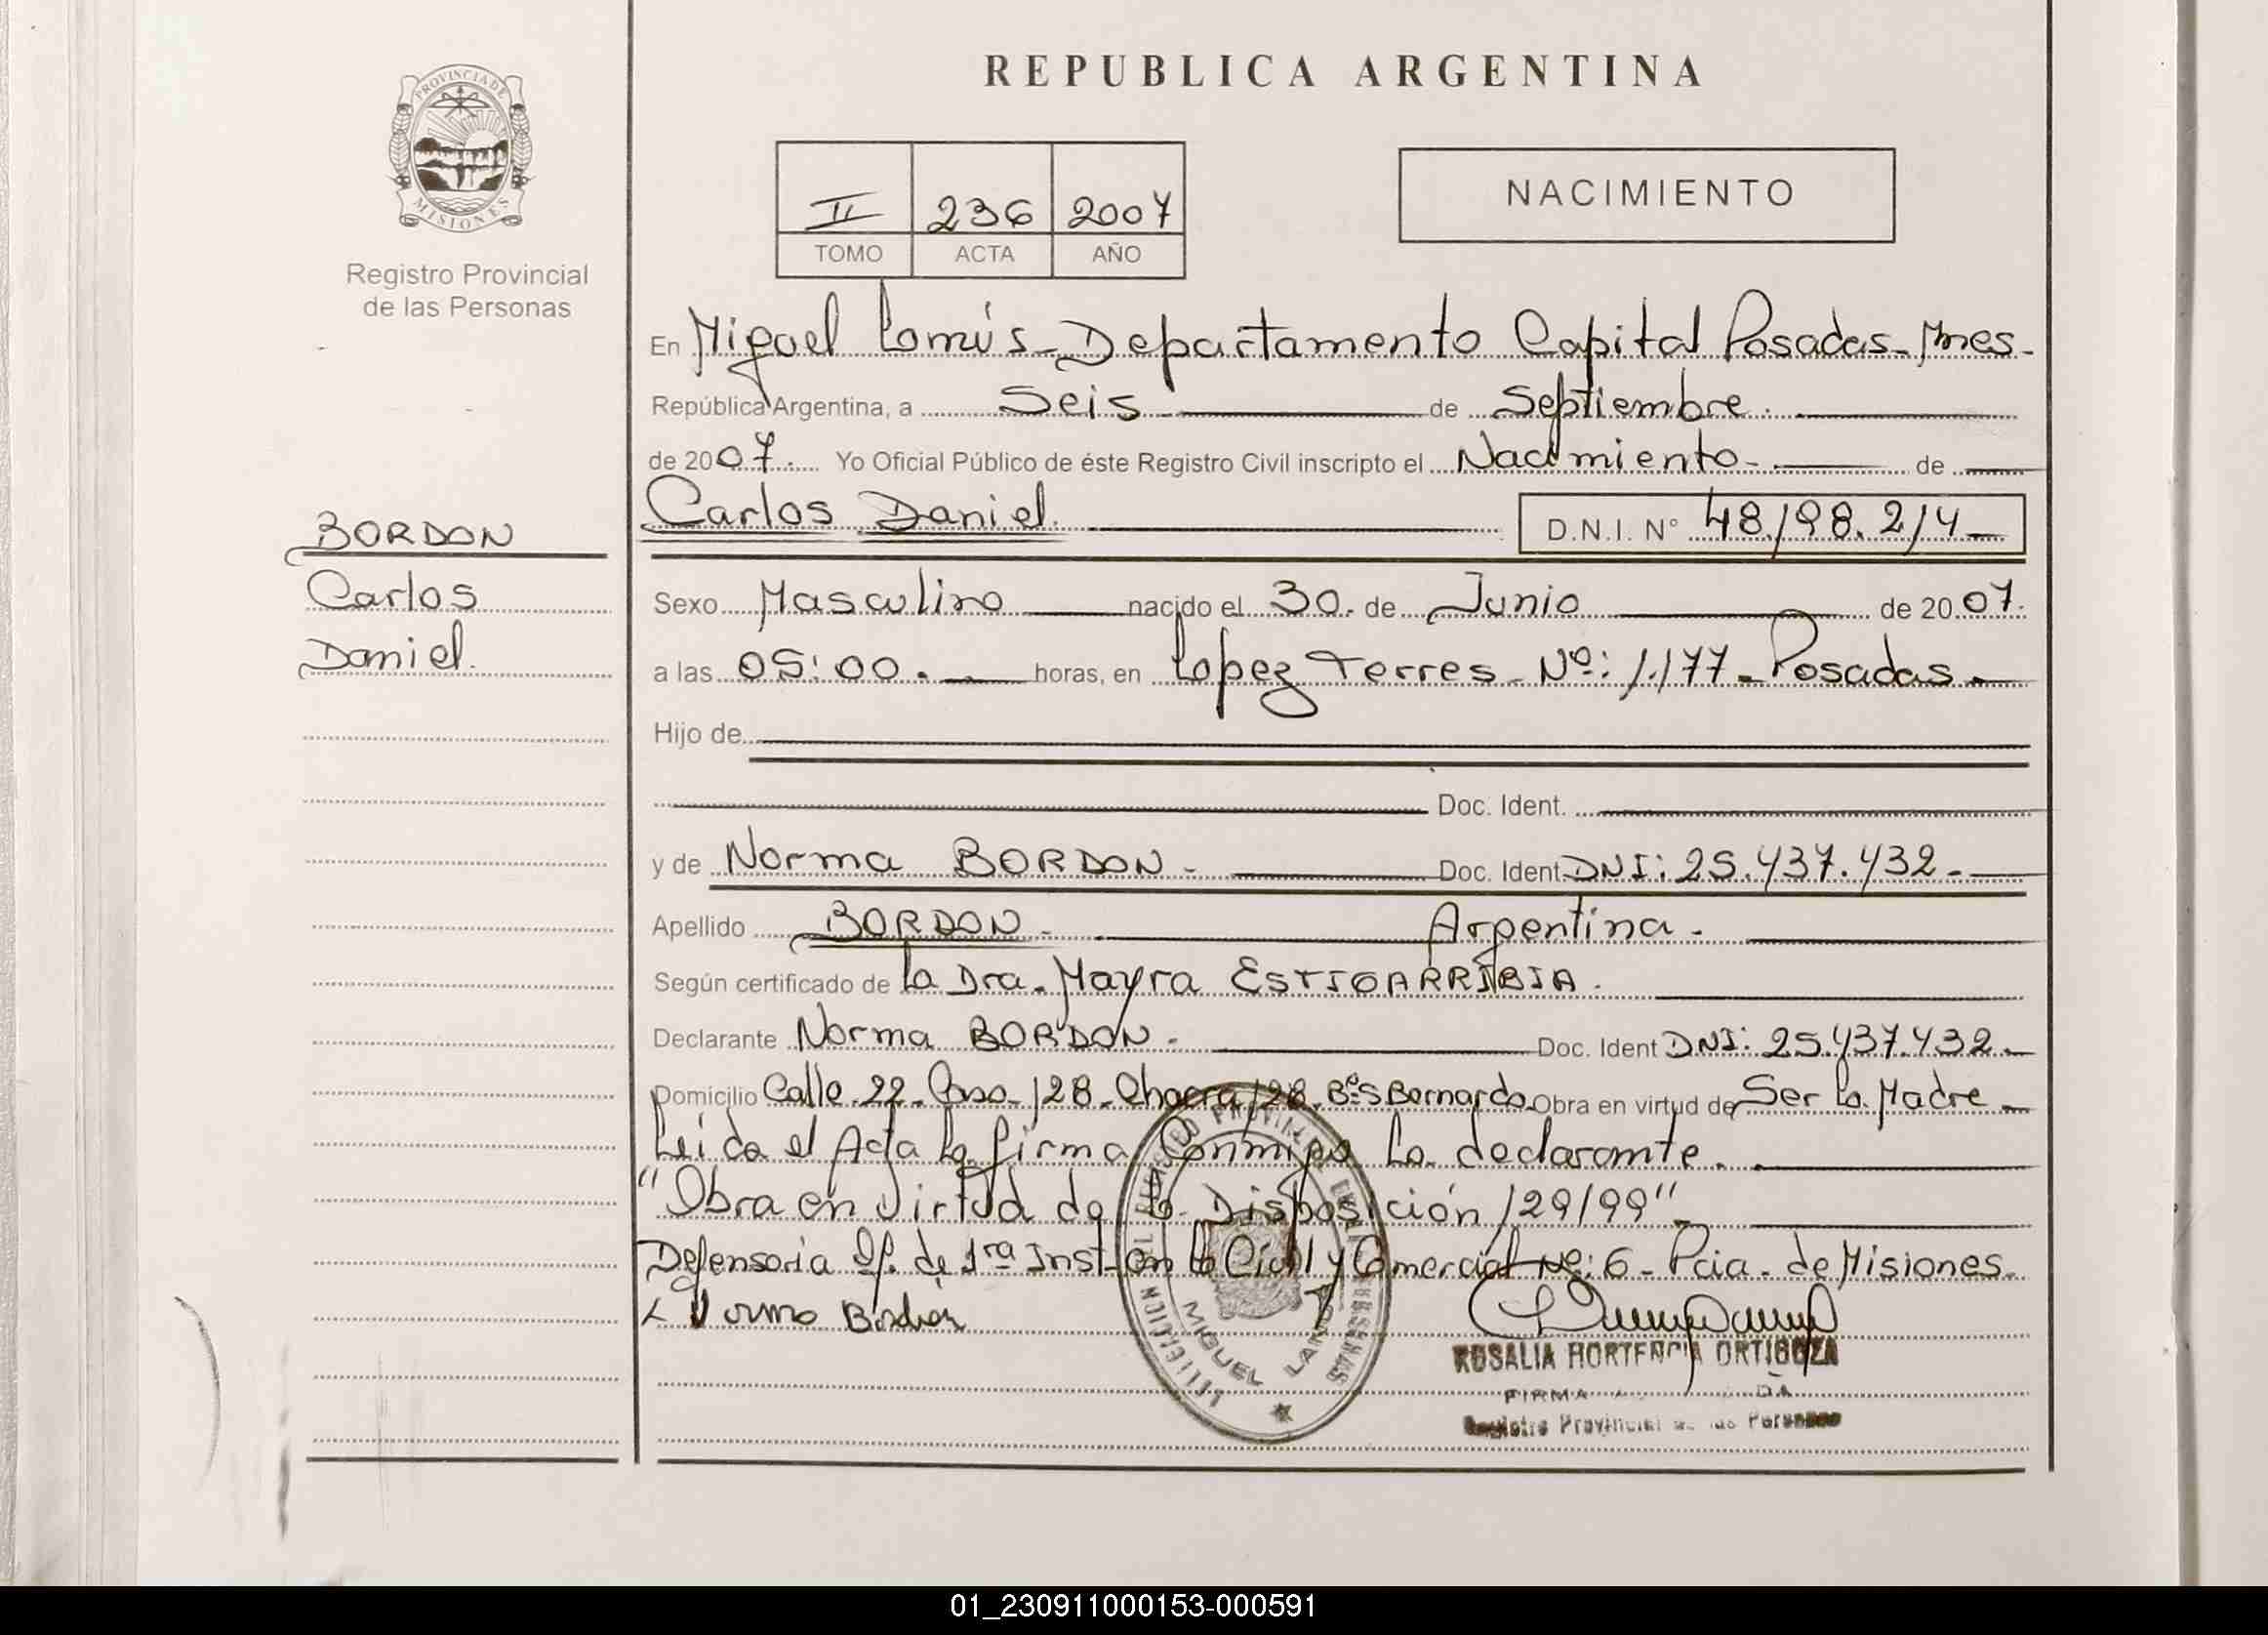 REPUBLICA ARGENTINA
PROVINCIA DE
MISIONES
Registro Provincial
de las Personas
II 236 2007
TOMO ACTA AÑO
NACIMIENTO
En Miguel Lanús - Departamento Capital Posadas - Mnes -
República Argentina, a Seis de Septiembre.
de 2007. Yo Oficial Público de éste Registro Civil inscripto el Nacimiento - de
Carlos Daniel. D.N.I. N° 48.198.214
BORDON
Carlos
Daniel.
Sexo Masculino nacido el 30. de Junio de 2007.
a las 05:00. horas, en Lopez Torres - Nº: 1.177 - Posadas.
Hijo de
Doc. Ident.
y de Norma BORDON - Doc. Ident DNI: 25.437.432 -
Apellido BORDON - Argentina -
Según certificado de la Dra. Mayra ESTIGARRIBIA.
Declarante Norma BORDON - Doc. Ident DNI: 25.437.432 -
Domicilio Calle 22 - Casa - 128 - Chacra 128 - Bº S Bernardo Obra en virtud de Ser la Madre -
Leida el Acta la firma Conmigo la declarante.
"Obra en Virtud de la Disposición 129/99" -
Defensoria Of. de 1ra Inst - en lo Civil y Comercial Nº: 6 - Pcia - de Misiones -
x Norma Bordon
MIGUEL LANUS
ROSALIA HORTENCIA ORTIGOZA
FIRMA
Registro Provincial de las Personas
01_230911000153-000591